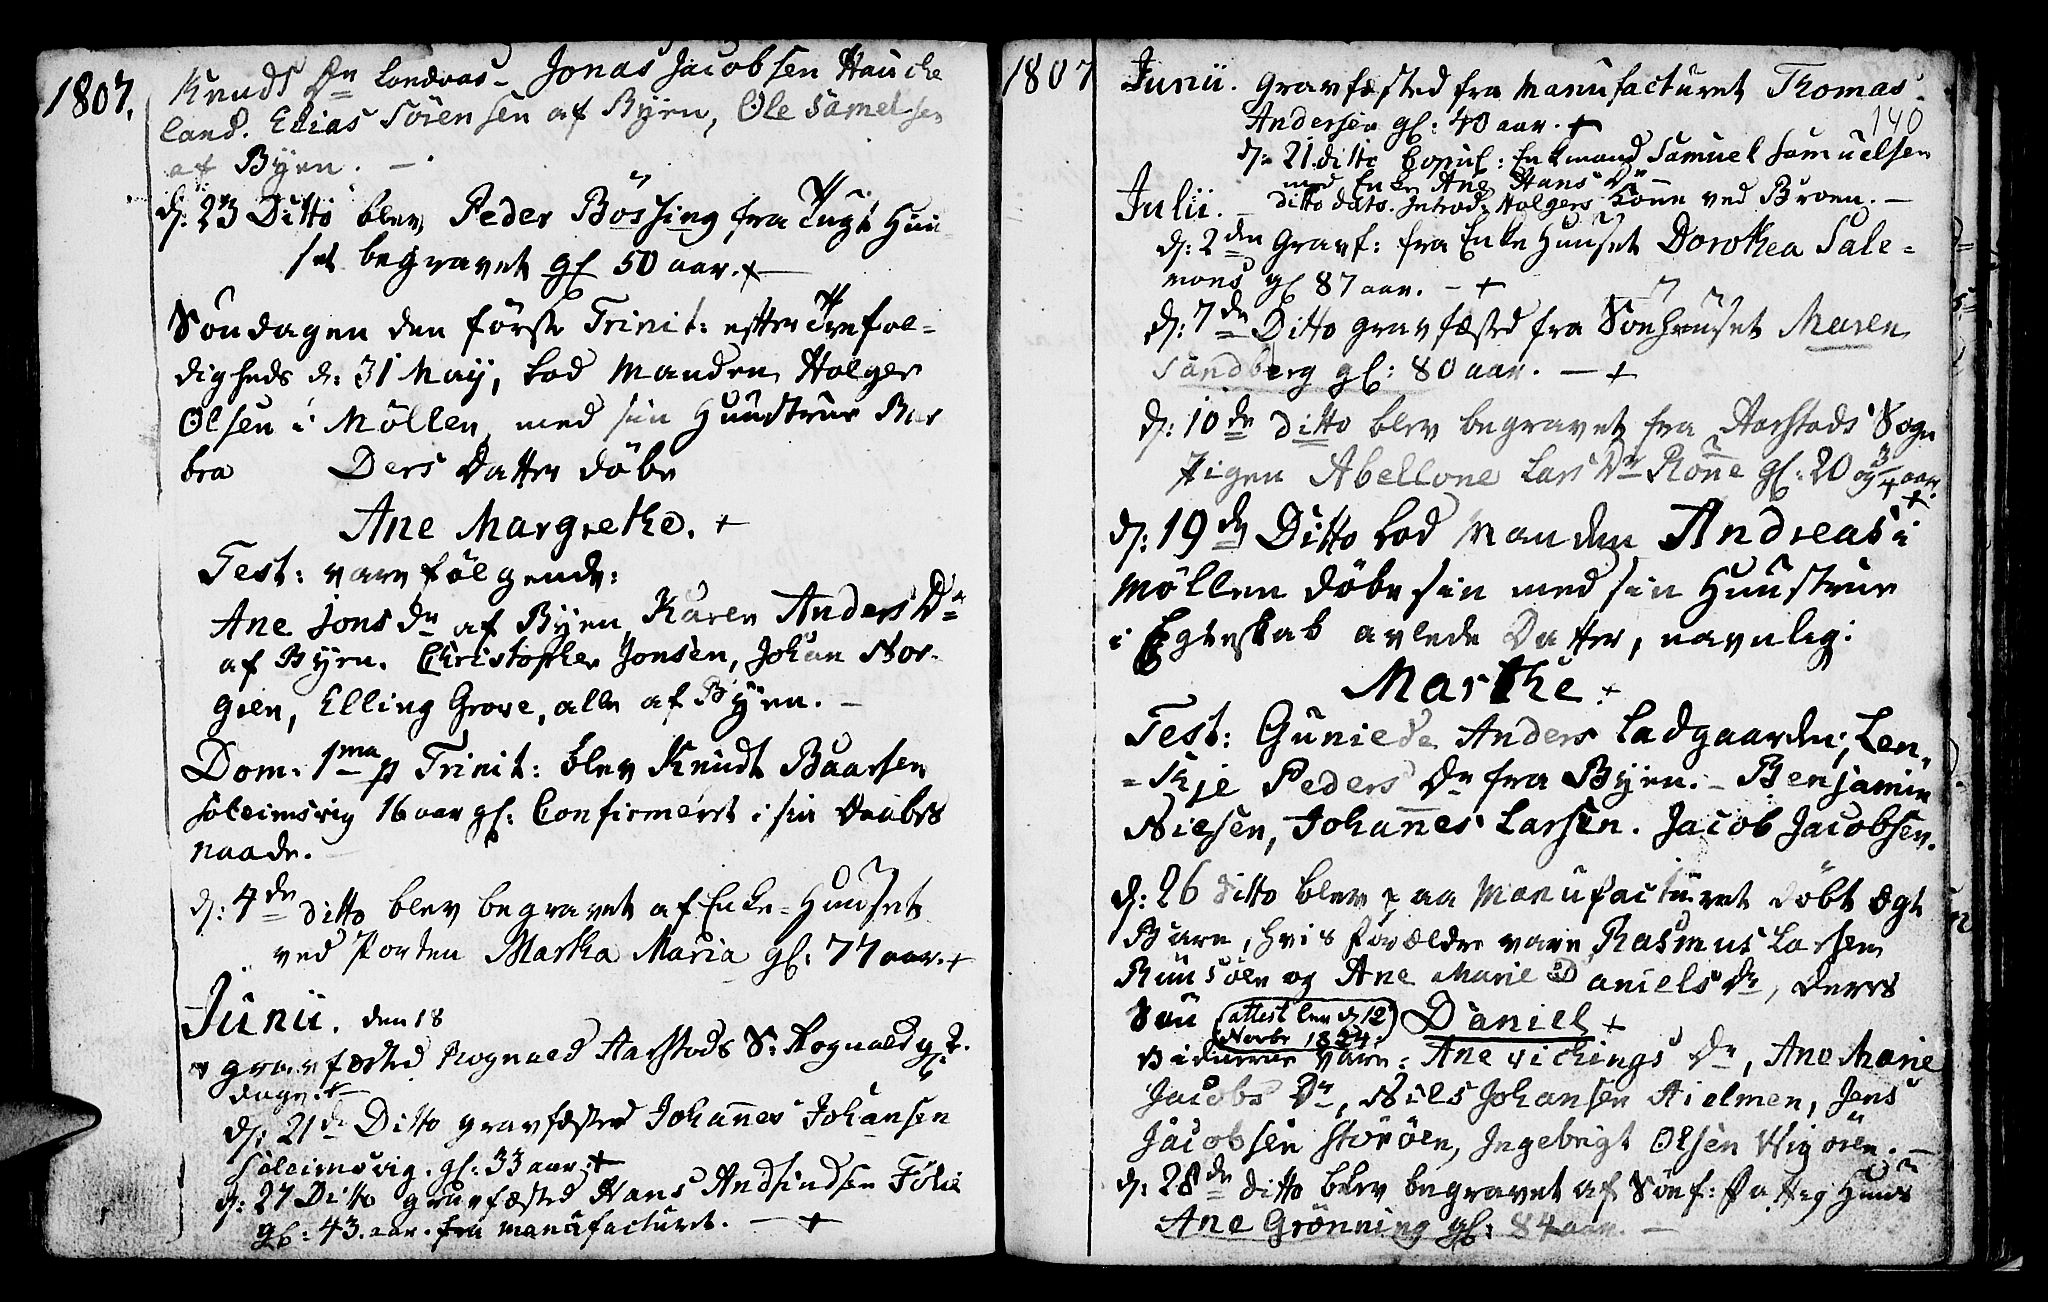 1807.
Knuds Dn Landaas - Jonas Jacobsen Hauke
land. Elias Sörensen af Byen, Ole Samelsen
af Byen. -
d: 23 Ditto blev Peder Bössing fra Tugt Huu
set begravet gl 50 aar. +
Söndagen den förste Trinit: efter Trefol-
digheds d: 31 May, lod Manden Holger
Olsen i Möllen med sin Huustrue Bar
bra Ders Datter döbe
Ane Margrethe. +
Test: vare fölgende:
Ane Jons Dn af Byen Karen Anders Dn
af Byen. Christopher Jonsen, Johan Nor-
gren, Elling Grove, alle af Byen. -
Dom. 1ma p Trinit: blev Knudt Baarsen
Soleimsvig 16 aar gl: Confirmeret i sin Daabs
Naade.
d: 4de ditto blev begravet af Enke-Huuset
ved Porten Martha Maria gl: 77 aar. +
Junii. den 18
gravfæsted Rognald Aarstads S: Rognald gl 2.
dage. +
d: 21de Ditto gravfæsted Johannes Johansen
Soleimsvig. gl: 33 aar. +
d: 27 Ditto gravfæsted Hans Andsindsen Folie
gl: 43. aar. fra manufacturet. - +
1807
140
Junii. gravfæsted fra Manufacturet Thomas
Andersen gl: 40 aar. +
d: 21. ditto Copul: Enkemand Samuel Samuelsen
med Enke Ane Hans Dn -
ditto dato. Introd: Holgers Kone ved Broen. -
Julii.
d: 2den Gravf: fra Enke Huuset Dorothea Sale-
mons gl 87 aar. - +
d: 7de Ditto gravfæsted fra Söehuuset Maren
Sandberg gl: 80 aar. - +
d: 10de ditto blev begravet fra Aarstads Sogn
Pigen Abellone Lars Dn Rönne gl: 20 og 3/4 aar. +
d: 19de Ditto lod Manden Andreas i
Möllen döbe sin med sin Huustrue
i Egteskab avlede Datter, navnlig:
Marthe. +
Test: Guniede Anders Ladgaarden, Len-
-Skje Peders Dn fra Byen. - Benjamin
Nielsen, Johannes Larsen. Jacob Jacobsen.
d: 26 ditto blev paa Manufacturet döbt ægt
Barn, hvis Forældre vare Rasmus Larsen
og Ane Marie Daniels Dn, deres
Sön (attest lev d 12 Novbr 1834.) Daniel +
vare: Ane Vichings Dn, Ane Marie
Jacobs Dn, Nils Johansen Hielmen, Jens
Jacobsen Storöen, Ingebrigt Olsen Wigören. -
d: 28de ditto blev begravet af Söef: Fattig Huus
Ane Grönning gl: 84 aar. -